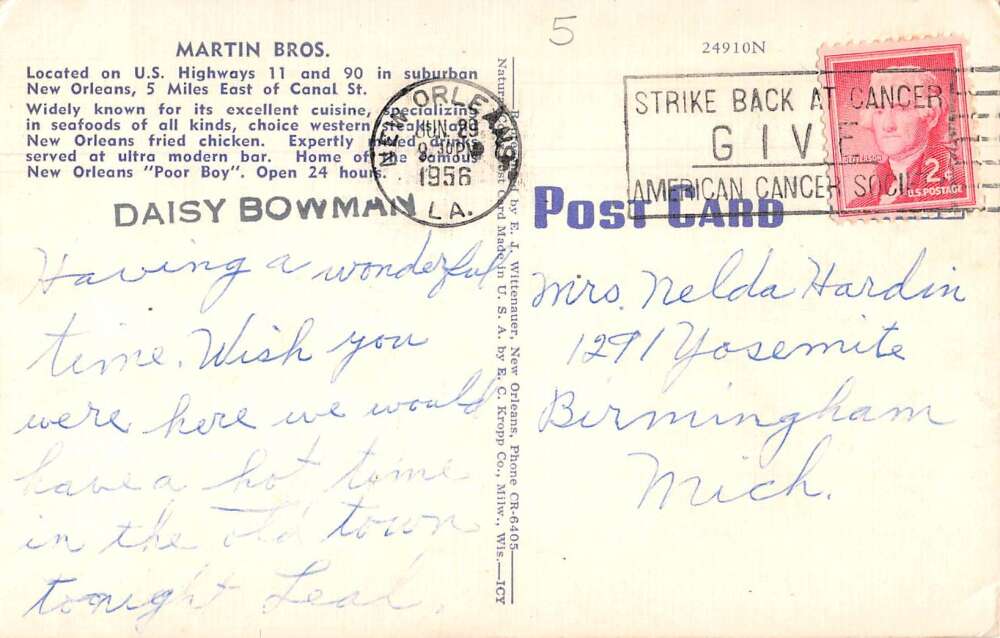 5
24910N
MARTIN BROS.
Located on U.S. Highways 11 and 90 in suburban
New Orleans, 5 Miles East of Canal St.
Widely known for its excellent cuisine, specializing
in seafoods of all kinds, choice western steaks and
New Orleans fried chicken. Expertly drinks
served at ultra modern bar. Home of the famous
New Orleans "Poor Boy". Open 24 hours.
NEW ORLEANS
JUN 29
PM
1956
LA.
STRIKE BACK AT CANCER
GIVE
AMERICAN CANCER SOCIETY
JEFFERSON
2¢
U.S. POSTAGE
DAISY BOWMAN
POST CARD
Having a wonderful
time. Wish you
were here we would
have a hot time
in the old town
tonight Leal.
by E. J. Wittenauer, New Orleans, Phone CR-6405
Post Card Made in U. S. A. by E. C. Kropp Co., Milw., Wis.—ICY
Mrs. Nelda Hardin
1291 Yosemite
Birmingham
Mich.